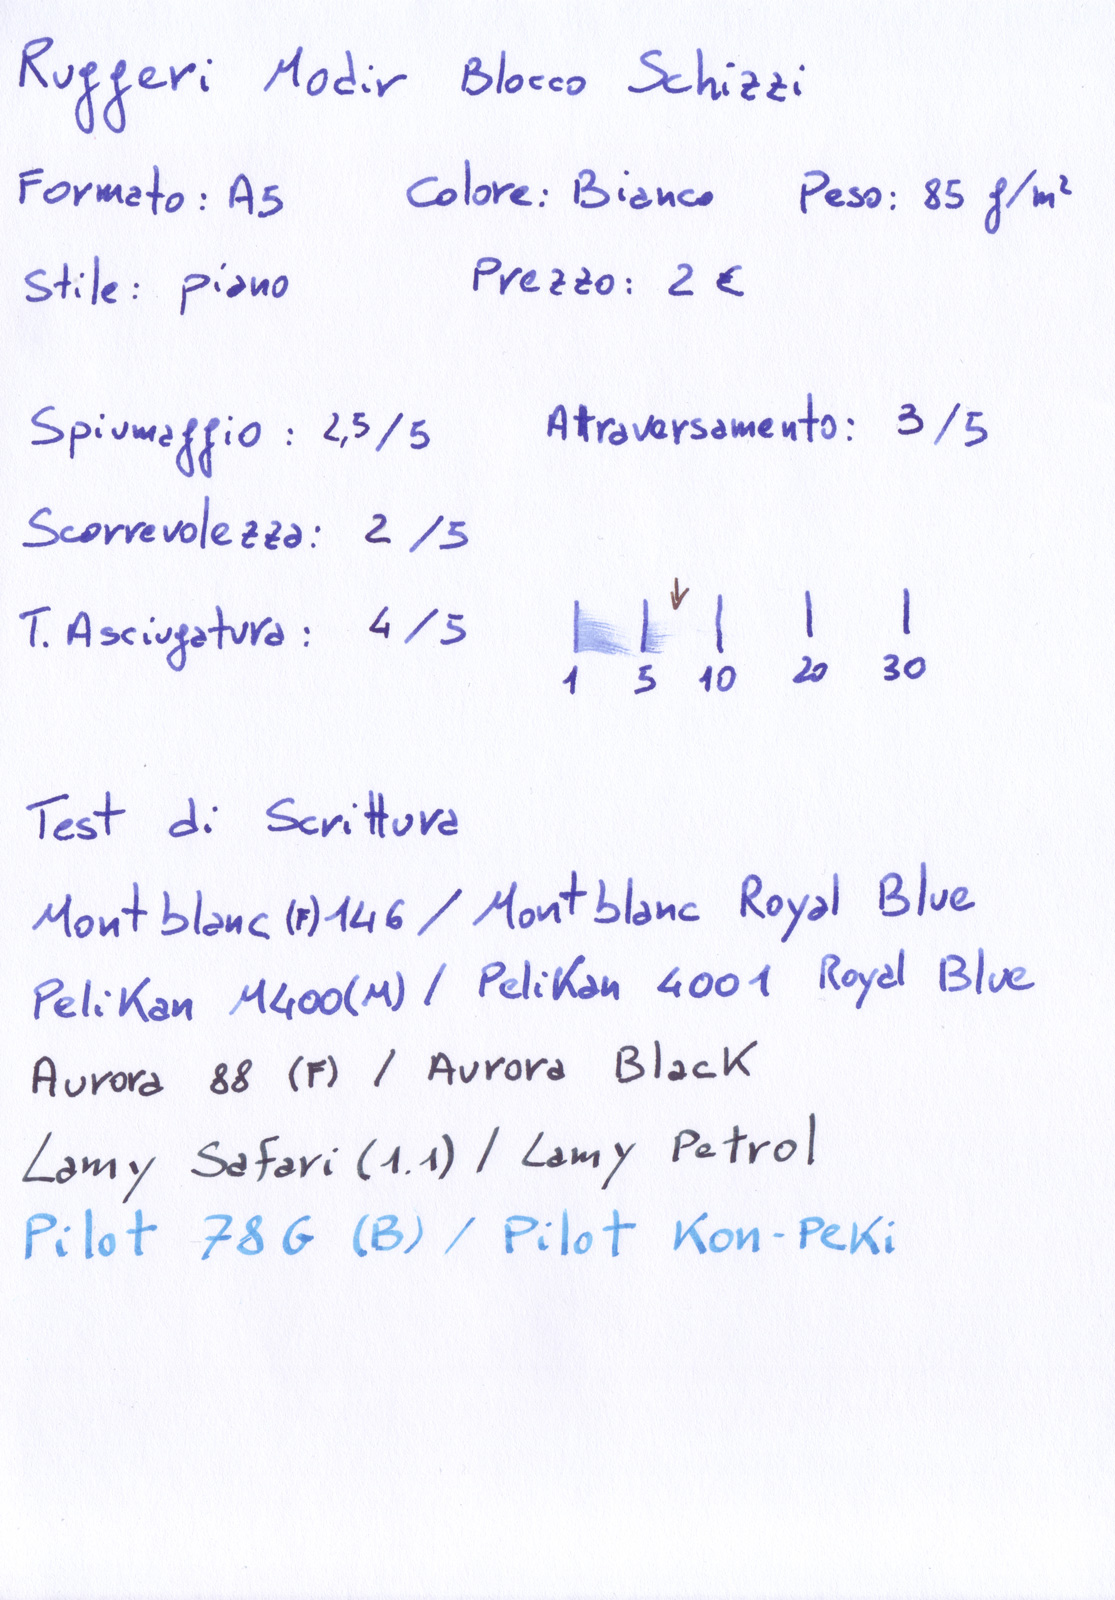 Ruggeri Modir Blocco Schizzi
Formato: A5 Colore: Bianco Peso: 85 g/m²
Stile: piano Prezzo: 2 €
Spiumaggio: 2,5/5 Attraversamento: 3/5
Scorrevolezza: 2/5
T. Asciugatura: 4/5
1 5 10 20 30
Test di Scrittura
Montblanc (F) 146 / Montblanc Royal Blue
Pelikan M400(M) / Pelikan 4001 Royal Blue
Aurora 88 (F) / Aurora Black
Lamy Safari (1.1) / Lamy Petrol
Pilot 78G (B) / Pilot Kon-Peki